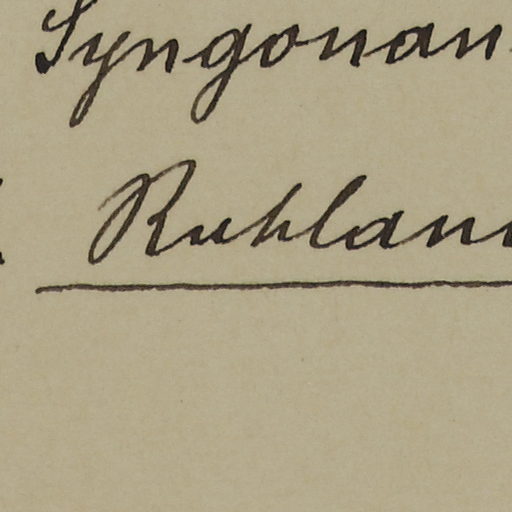 Syngonan
Ruhlan